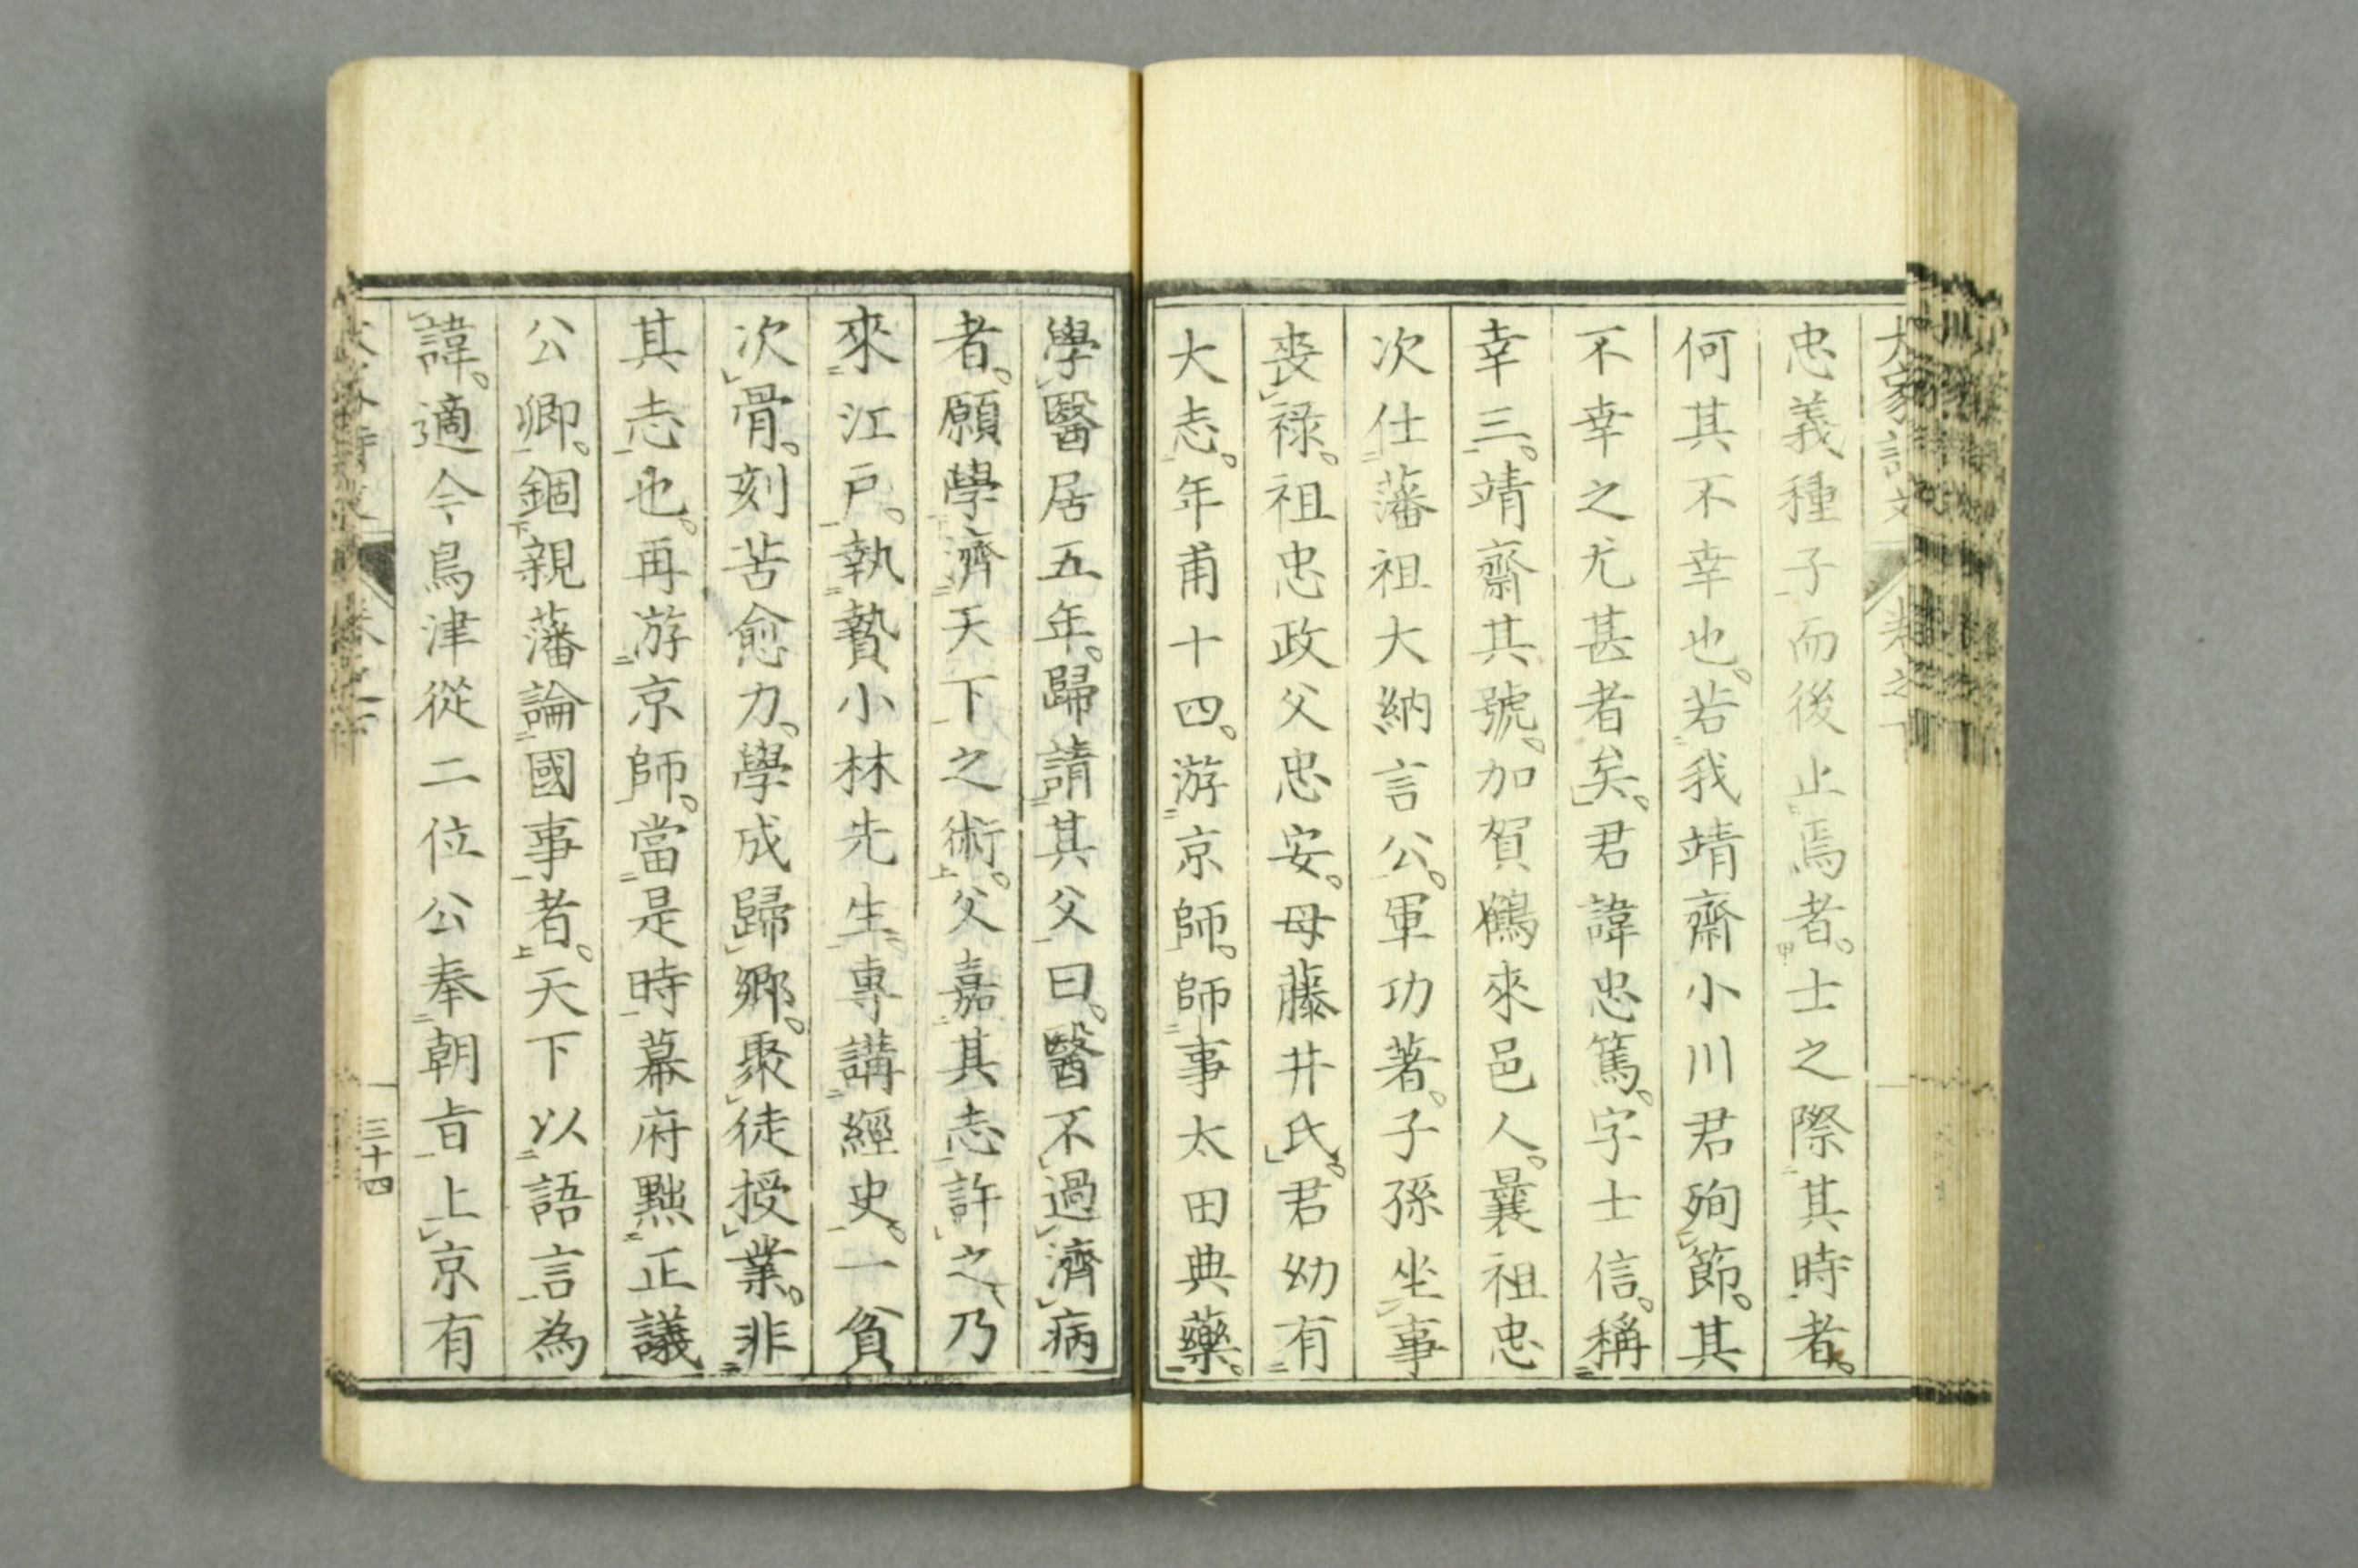 忠義種子而後止焉者。士之際其時者。
何其不幸也。若我靖齋小川君殉節。其
不幸之尤甚者矣。君諱忠篤。字士信。稱
幸三。靖齋其號。加賀鶴來邑人。曩祖忠
次仕藩祖大納言公。軍功著。子孫坐事
喪祿。祖忠政父忠安。母藤井氏。君幼有
大志。年甫十四。游京師。師事太田典藥。
學醫居五年。歸請其父曰。醫不過濟病
者。願學濟天下之術。父嘉其志許之。乃
來江戶。執贄小林先生。專講經史。一貧
次骨。刻苦愈力。學成歸鄉。聚徒授業。非
其志也。再游京師。當是時幕府黜正議
公卿。錮親藩論國事者。天下以語言為
諱。適今島津從二位公奉朝旨上京有
三十四